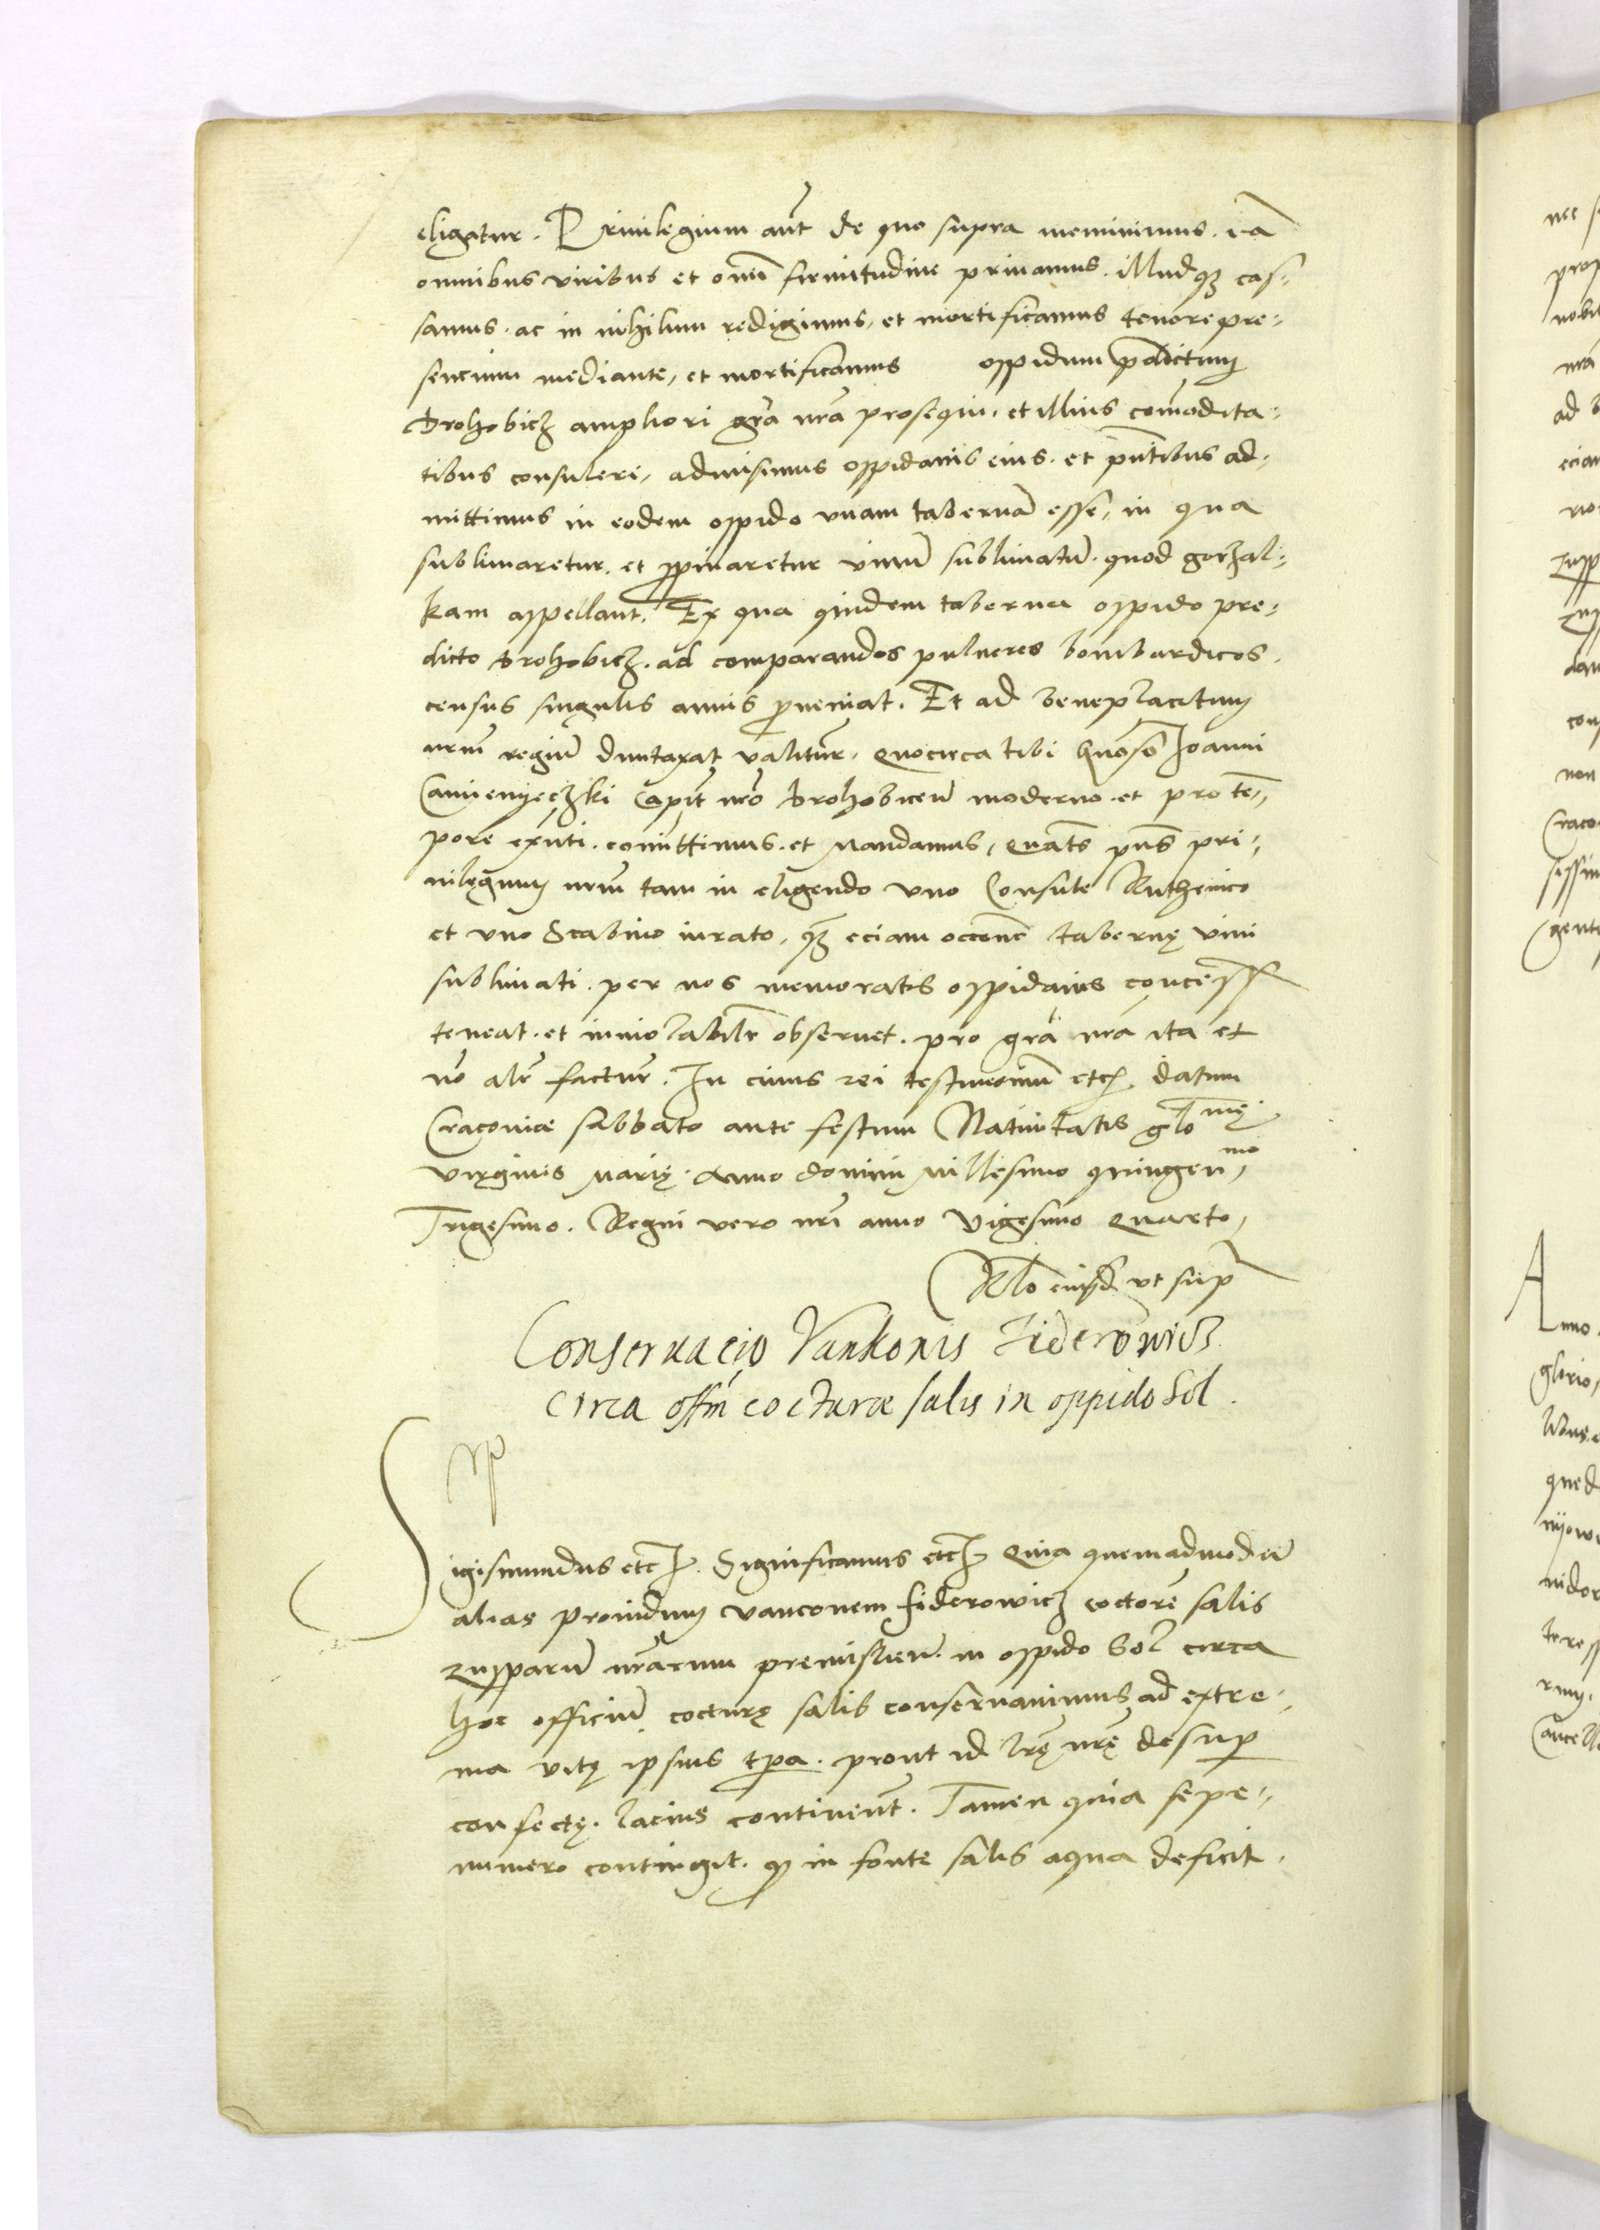 eligatur. Priuilegium aut̃ de quo supra meminimus. iã
omnibus viribus et om̃i firmitudine priuamus. illudqꝫ cas-
samus. ac in nihilum redigimus, et mortificamus tenore pre-
sencium mediante, et mortificamus oppidum p̃dictum
drohobicz ampliori gr̃a nr̃a prosequi. et illius com̃odita-
tibus consulere, admisimus oppidanis eius. et pñtibus ad-
mittimus in eodem oppido vnam tabernã esse, in qua
sublimaretur. et ꝓpinaretur vinũ sublimatũ. quod gorzal-
kam appellant. Ex qua quidem taberna oppido pre-
dicto drohobicz. ad comparandos pulueres bombardicos.
census singulis annis ꝓueniat. Et ad beneplacitum
nrm̃ regiũ duntaxat valitur̃. Quocirca tibi Gñoso Joanni
Camienyeczki Capit̃ nrõ drohobiceñ moderno. et pro tẽ-
pore exñti. com̃ittimus. et Mandamus, quat̃s pñs pri-
uilegium nrm̃ tam in eligendo vno Consule Ruthenico
et vno Scabino iurato, qꝫ eciam occonẽ tabernę vini
sublimati. per nos memoratis oppidanis concess̃
teneat. et inuiolabilr̃ obseruet. pro gr̃a nr̃a ita et
nõ alr̃ factur̃. In cuius rei testimoniũ etc̃. datum
Cracouiæ sabbato ante festum Natiuitatis glo mę.
virginis Marię. Anno domini Millesimo quingen mo
Trigesimo. Regni vero nr̃i anno Vigesimo quarto,
Rlo eiusd̃ vt sup̃
Conseruacio Vankonis Fiderowicz
circa offm̃ cocturæ salis in oppido Sol.
Sigismundus etc̃. Significamus etc̃. Quia quemadmodũ
alias prouidum vanconem fiderowicz coctorẽ salis
zupparũ nr̃arum premislieñ. in oppido Sol circa
hoc officiũ cocturę salis conseruauimus ad extre-
ma vitę ipsius tp̃a. prout id lr̃ę nr̃ę desuꝑ
confectę. lacius continent̃. Tamen quia sepe-
numero contingit. ꝙ in fonte salis aqua deficit.